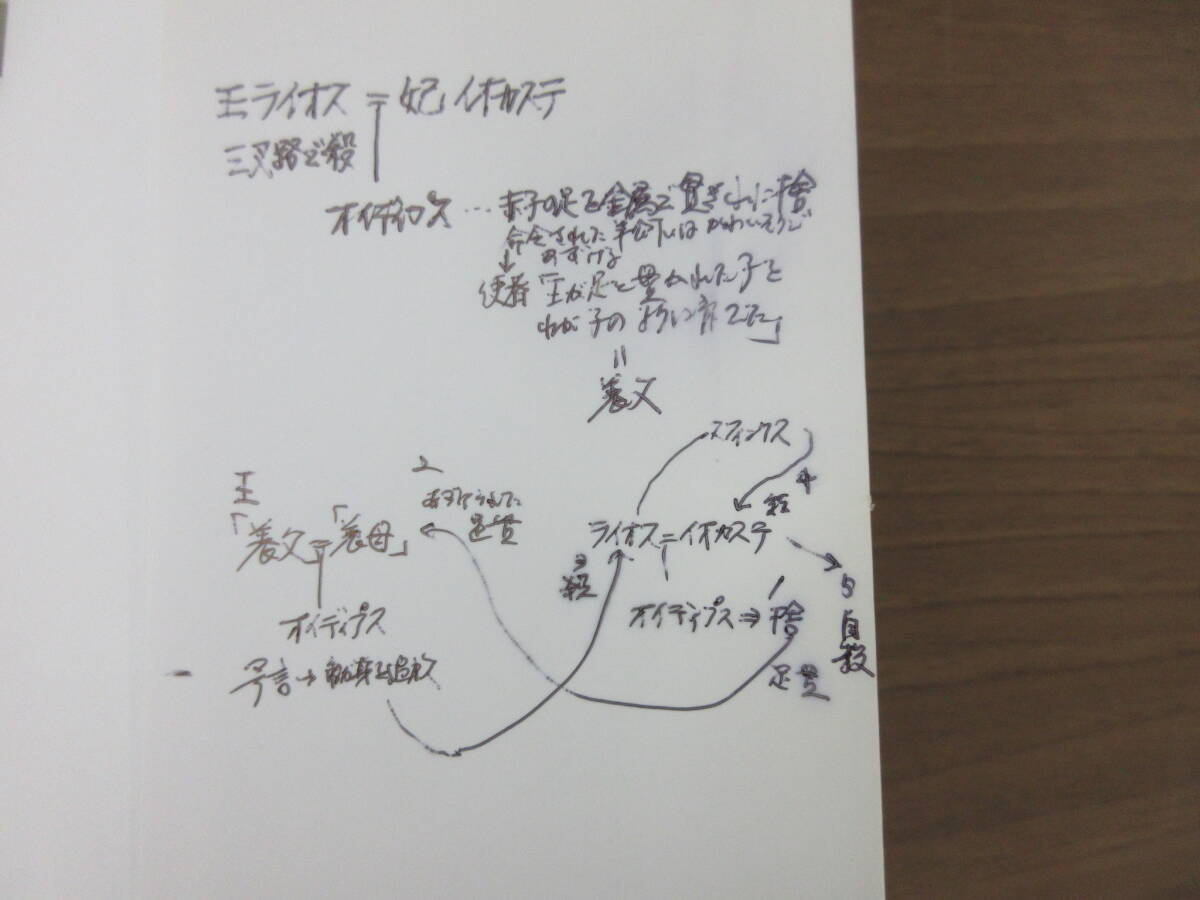 王ライオス = 妃イオカステ
三叉路で殺
オイディプス … 赤子の足を金属で貫き山に捨
命令された羊飼いはかわいそうで
あずける
↓
使者「王が足を貫かれた子を
わが子のように育てた」
=
養父
スフィンクス
王
「養父=養母」
2
あずけられた
足貫
4
ライオス=イオカステ
3
殺
オイディプス⇒捨
1
足貫
5
自殺
オイディプス
予言→